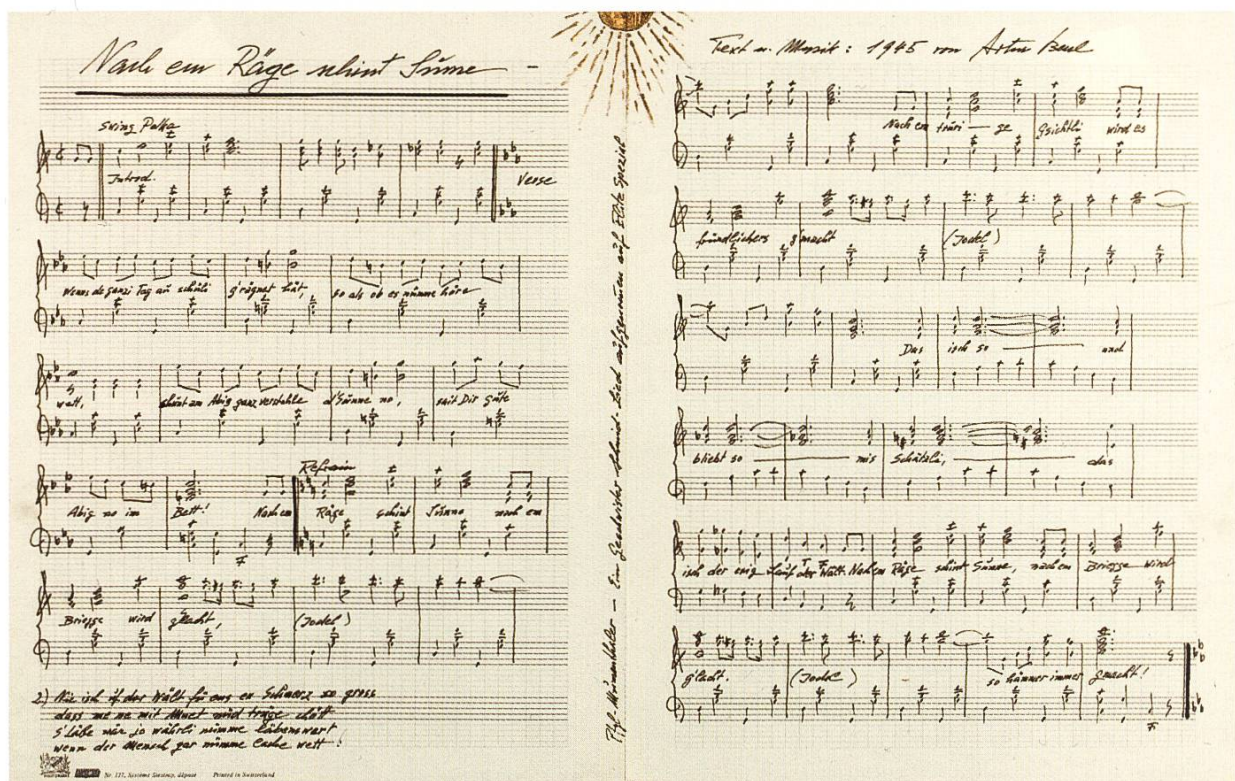 Nach em Räge schint Sunne –
Swing Polka
Introd.
Verse
Wenns de ganzi Tag au schüli g'rägnet hät, so als ob es nümme höre
wett, schint am Abig ganz verstohle d'Sunne no, seit Dir guete
Refrain
Abig no im Bett! Nach em Räge schint Sunne nach em
Briegge wird glacht, (Jodel)
2) Nie isch uf der Wält für eus en Schmerz so gross
dass me ne mit Muet nüd träge chöt
S'Läbe wär jo währli nümme läbenswert
wenn der Mensch gar nümme lache wett!
Nr. 117, Printed in Switzerland
Ein Geschwister Schmid-Lied aufgenommen auf Elite Special
Text u. Musik: 1945 von Artur Beul
Nach em trüri – ge Gsichtli wird es
fründlichers g'macht (Jodel)
Das isch so und
bliebt so mis Schätzli, das
isch der ewig Lauf der Wält. Nach em Räge schint Sunne, nach em Briegge wird
g'lacht. (Jodel) so hämmer immer gmacht!